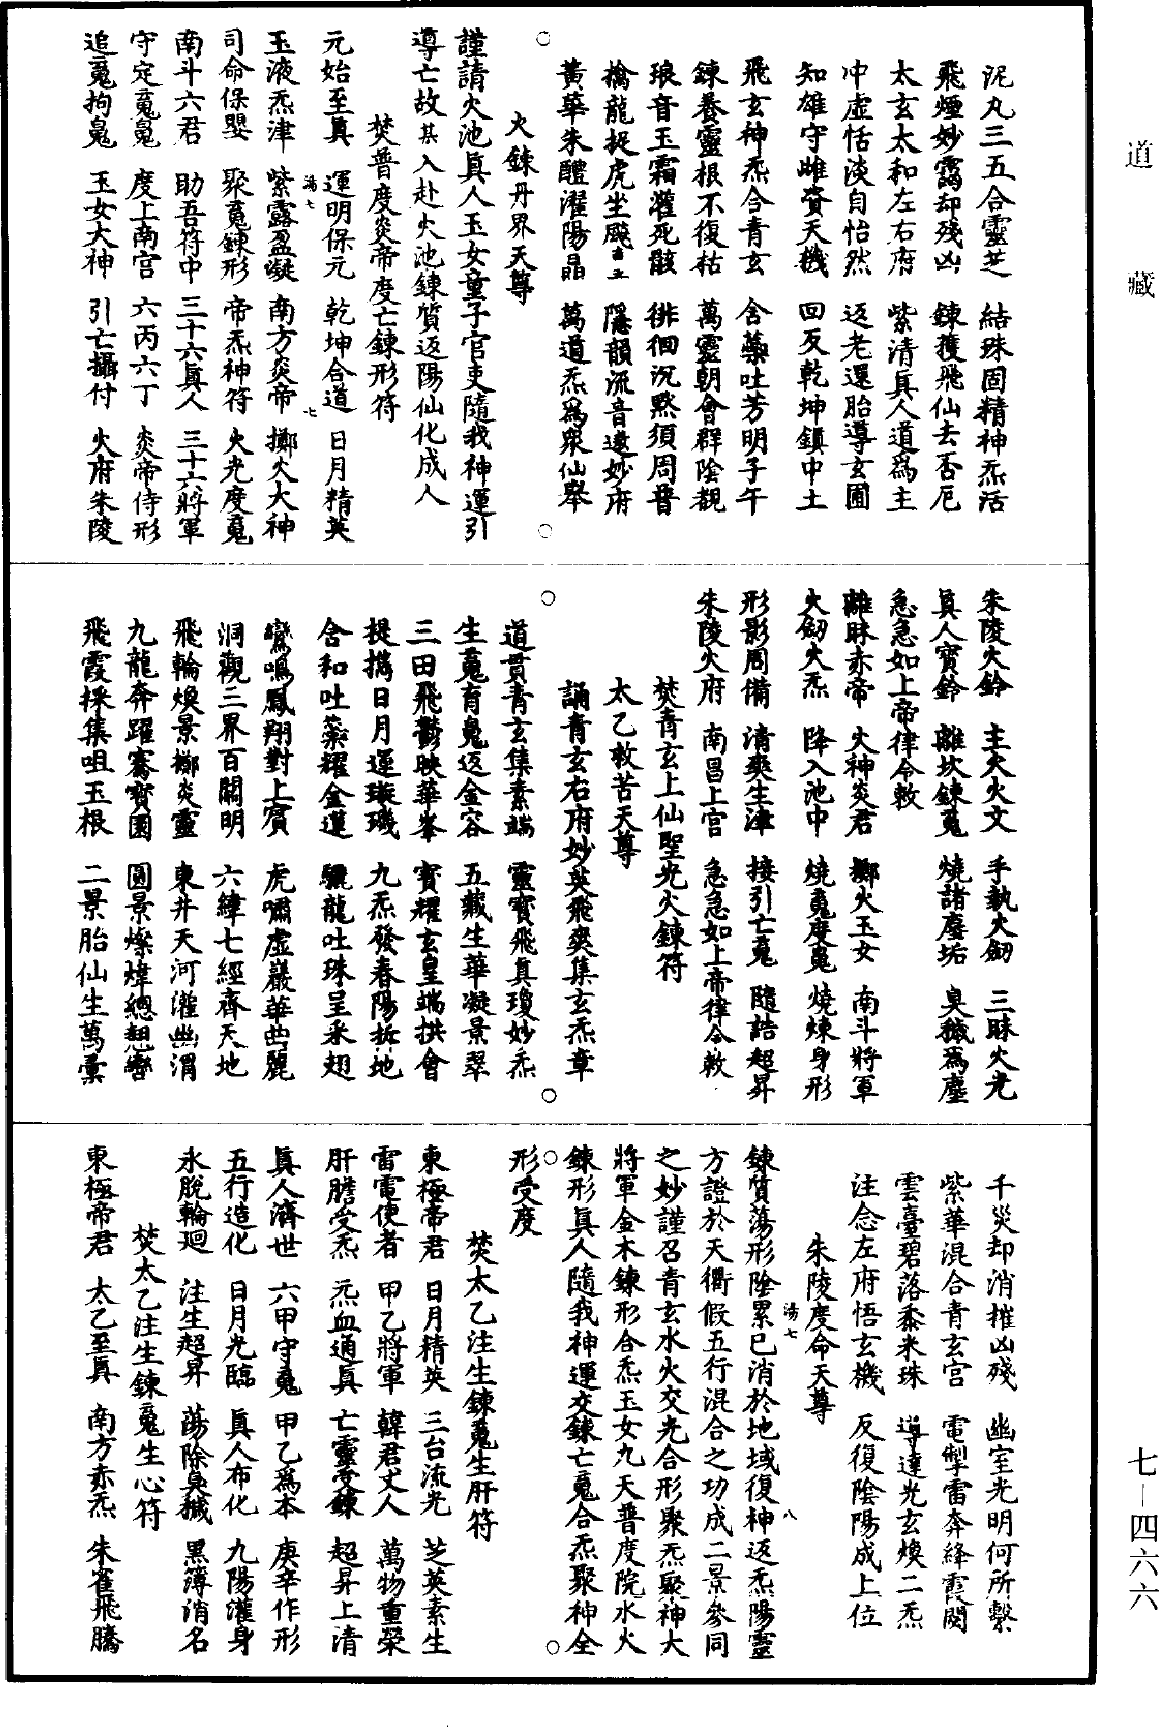 道藏
七—四六六
泥丸三五合靈芝 結珠固精神炁活
飛煙妙靄却殘凶 鍊獲飛仙去否厄
太玄太和左右府 紫清真人道為主
冲虛恬淡自怡然 返老還胎導玄圃
知雄守雌資天機 回反乾坤鎮中土
飛玄神炁合青玄 含藥吐芳明子午
鍊養靈根不復枯 萬靈朝會群陰覩
琅音玉霜灌死骸 徘徊沉默須周普
擒龍捉虎坐颷 隱韻流音遶妙府
黃華朱醴濯陽晶 萬道炁為眾仙舉
火鍊丹界天尊
謹請火池真人玉女童子官吏隨我神運引
導亡故某入赴火池鍊質返陽仙化成人
焚普度炎帝度亡鍊形符
元始至真 運明保元 乾坤合道 日月精英
湯七 七
玉液炁津 紫露盈凝 南方炎帝 擲火大神
司命保嬰 聚䰟鍊形 帝炁神符 火光度䰟
南斗六君 助吾符中 三十六真人 三十六將軍
守定䰟䰟 度上南宮 六丙六丁 炎帝侍形
追䰟拘䰟 玉女大神 引亡攝付 火府朱陵
朱陵火鈴 主火火文 手執火劒 三昧火光
真人寶鈴 離坎鍊䰟 燒諸廢垢 臭穢為塵
急急如上帝律令敕
離昧赤帝 火神炎君 擲火玉女 南斗將軍
火劒火炁 降入池中 燒䰟度䰟 燒煉身形
形影周備 清爽生津 接引亡䰟 隨誥超昇
朱陵火府 南昌上宮 急急如上帝律令敕
焚青玄上仙聖光火鍊符
太乙救苦天尊
誦青玄右府妙英飛爽集玄炁章
道貫青玄集素端 靈寶飛真瓊妙炁
生䰟育䰟返金容 五藏生華凝景翠
三田飛鬱映華峯 寶耀玄皇端拱會
提携日月運璇璣 九炁發春陽拆地
含和吐藥耀金蓮 驪龍吐珠呈采翅
鸞鳴鳳翔對上賓 虎嘯虛巖華曲麗
洞觀三界百關明 六緯七經齊天地
飛輪煥景擲炎靈 東井天河灌幽渭
九龍奔躍騫寶園 圓景燦煒總翹轡
飛霞採集咀玉根 二景胎仙生萬彙
千災却消摧凶殘 幽室光明何所繫
紫華混合青玄宮 電掣雷奔絳霞閟
雲臺碧落黍米珠 導達光玄煥二炁
注念左府悟玄機 反復陰陽成上位
朱陵度命天尊
湯七 八
鍊質蕩形陰累已消於地域復神返炁陽靈
方證於天衢假五行混合之功成二景參同
之妙謹召青玄水火交光合形聚炁聚神大
將軍金木鍊形合炁玉女九天普度院水火
鍊形真人隨我神運交鍊亡䰟合炁聚神全
形受度
焚太乙注生鍊䰟生肝符
東極帝君 日月精英 三台流光 芝英素生
雷電使者 甲乙將軍 韓君丈人 萬物重榮
肝膽受炁 炁血通真 亡靈受鍊 超昇上清
真人濟世 六甲守䰟 甲乙為本 庚辛作形
五行造化 日月光臨 真人布化 九陽灌身
永脫輪迴 注生超昇 蕩除臭穢 黑簿消名
焚太乙注生鍊䰟生心符
東極帝君 太乙至真 南方赤炁 朱雀飛騰